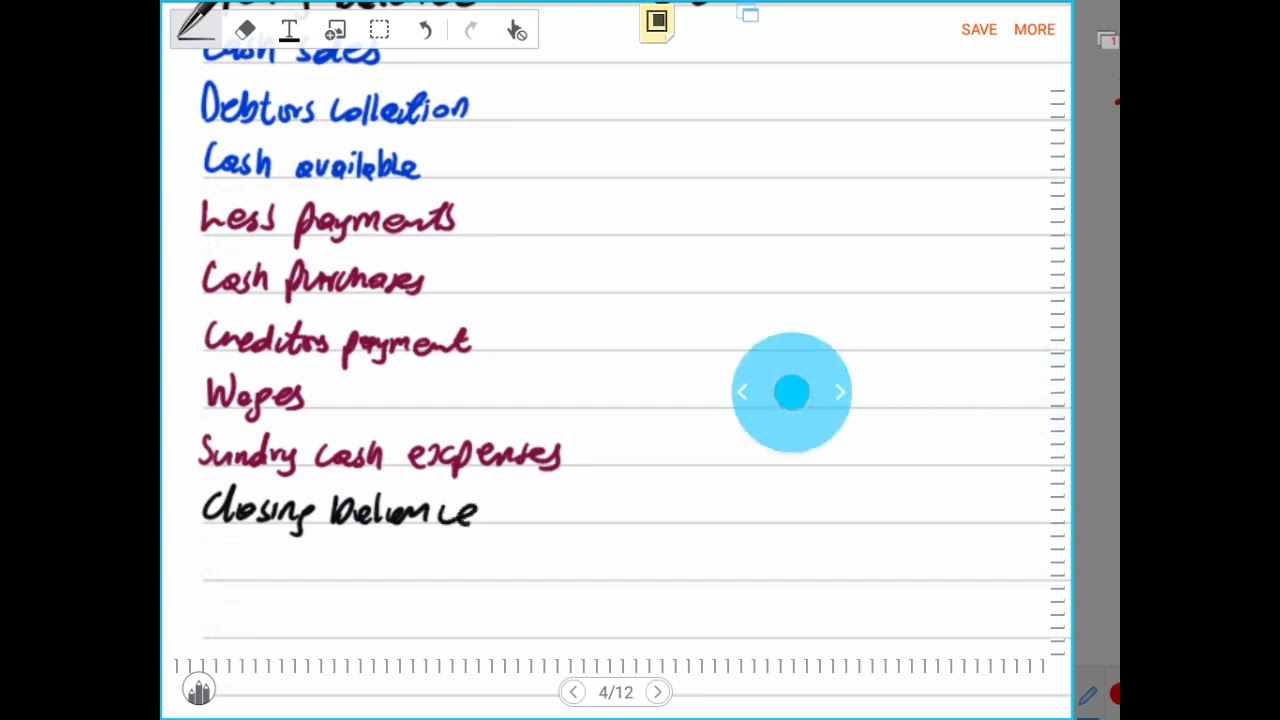 balance
SAVE MORE
Cash sales
Debtors collection
Cash available
Less payments
Cash purchases
Creditors payment
Wages
Sundry cash expenses
Closing balance
4/12
1